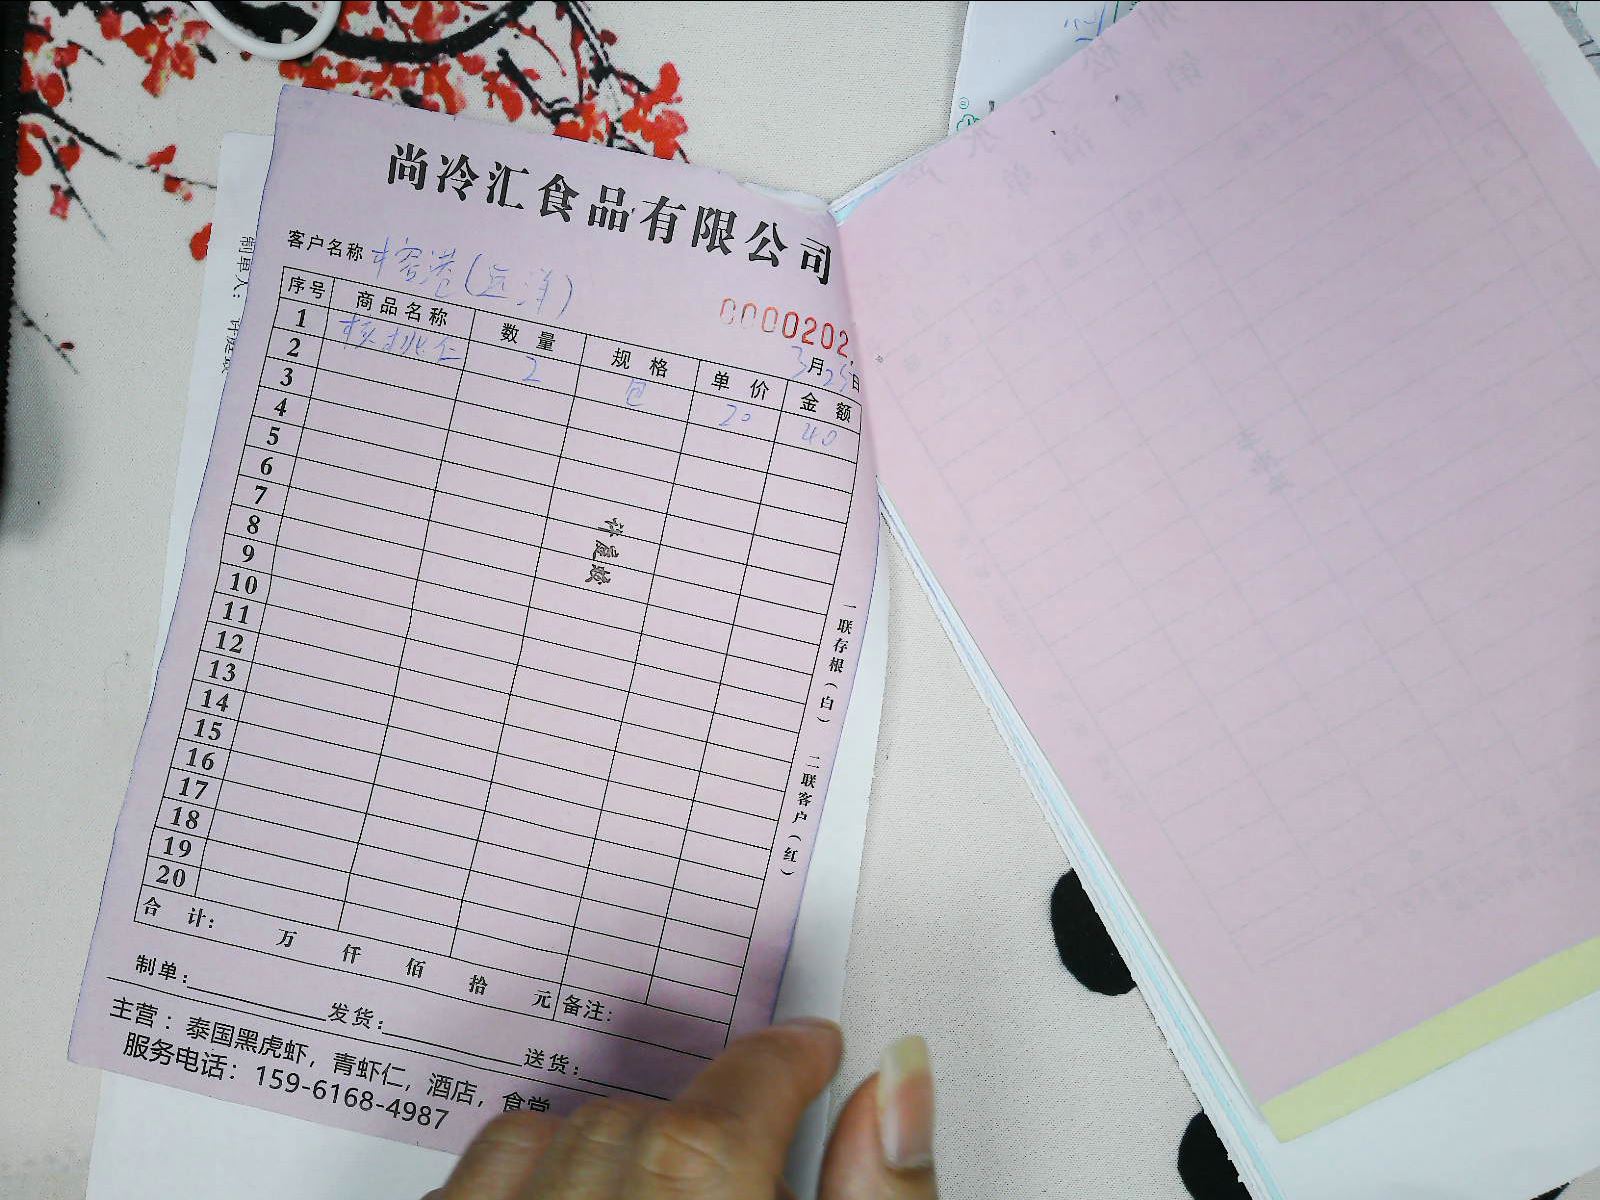 尚冷汇食品有限公司
客户名称 榕港(远洋)
0000202
3月25日
序号 商品名称 数量 规格 单价 金额
1 核桃仁 2 包 20 40
2
3
4
5
6
7
8
9
10
11
12
13
14
15
16
17
18
19
20
合计: 万 仟 佰 拾 元 备注:
制单: 发货: 送货:
主营：泰国黑虎虾，青虾仁，酒店，食堂
服务电话：159-6168-4987
一联存根(白) 二联客户(红)
制单人: